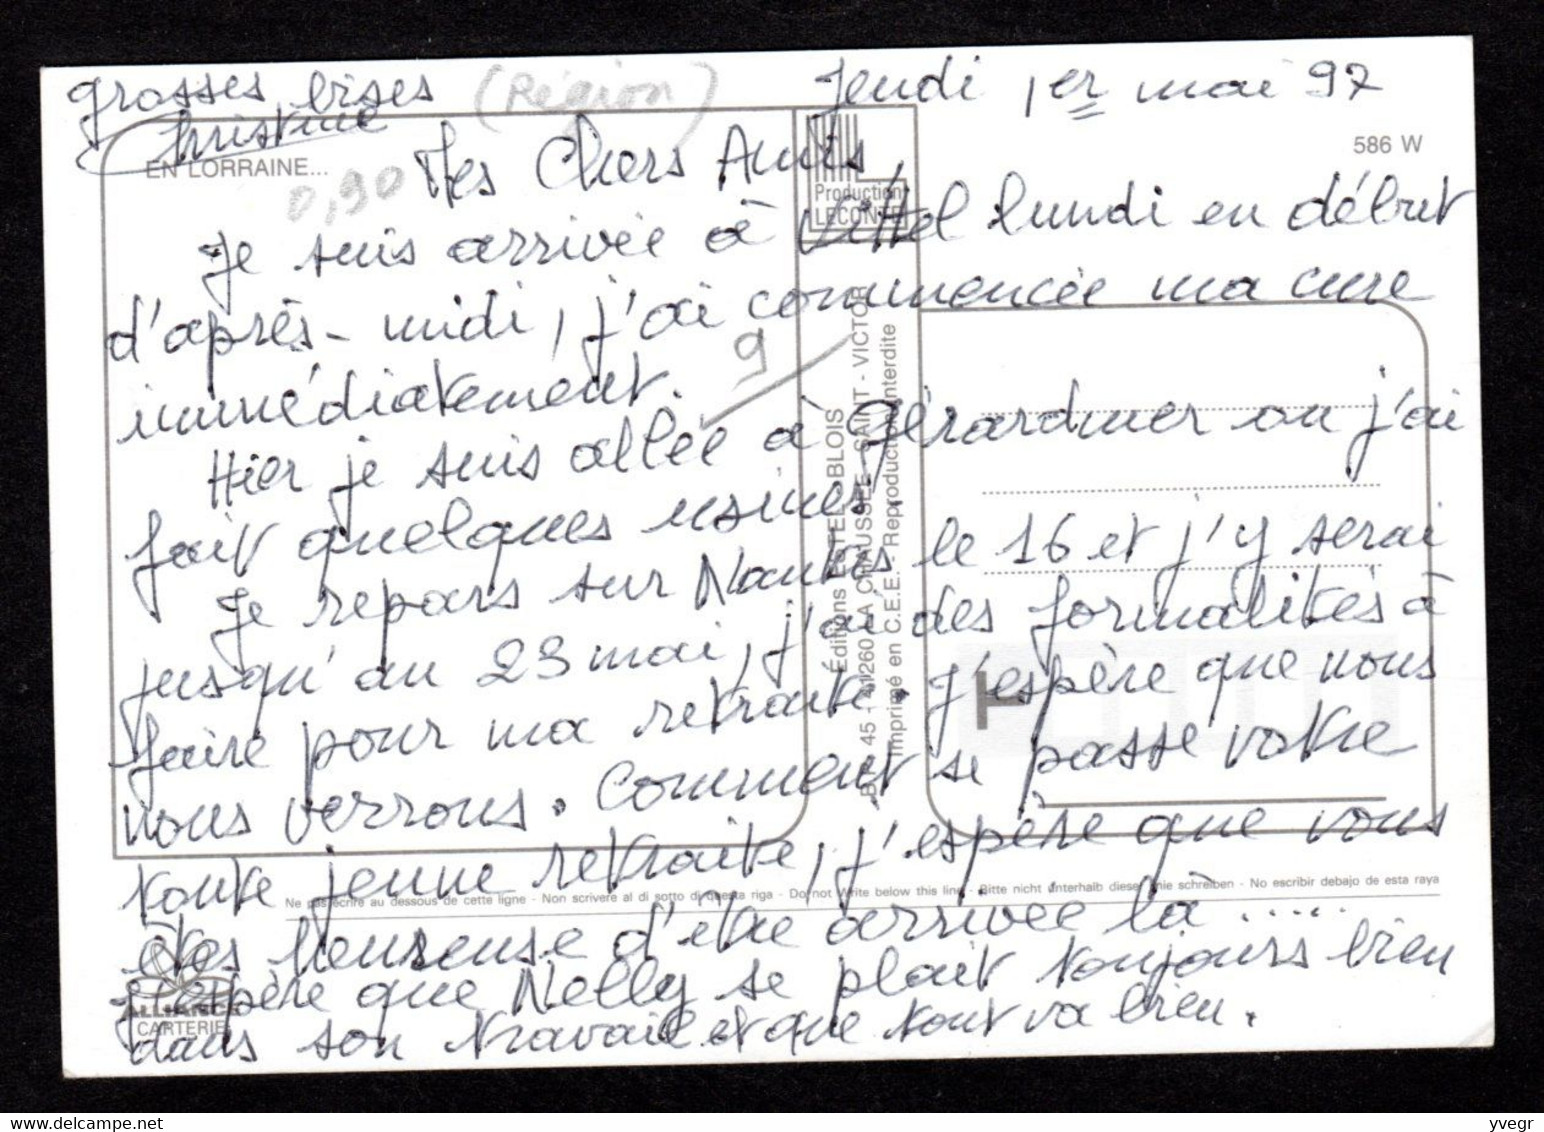 Jeudi 1er mai 97
Mes Chers Amis,
Je suis arrivée à Vittel lundi en début
d'après-midi, j'ai commencée ma cure
immédiatement.
Hier je suis allée à Gérardmer ou j'ai
fait quelques usines.
Je repars sur Nantes le 16 et j'y serai
jusqu'au 23 mai, j'ai des formalités à
faire pour ma retraite. j'espère que nous
nous verrons. Comment se passe votre
toute jeune retraite, j'espère que vous
êtes heureuse d'être arrivée là .....
J'espère que Nelly se plait toujours bien
dans son travail et que tout va bien.
grosses bises
Christine
(Région)
0,90
9
EN LORRAINE...
586 W
Production
LECONTE
Éditions ESTEL-BLOIS
B.P. 45 - 41260 LA CHAUSSÉE - SAINT - VICTOR
Imprimé en C.E.E. - Reproduction interdite
Ne pas écrire au dessous de cette ligne - Non scrivere al di sotto di questa riga - Do not write below this line - Bitte nicht unterhalb dieser linie schreiben - No escribir debajo de esta raya
ALLIANCE
CARTERIE
www.delcampe.net
yvegr